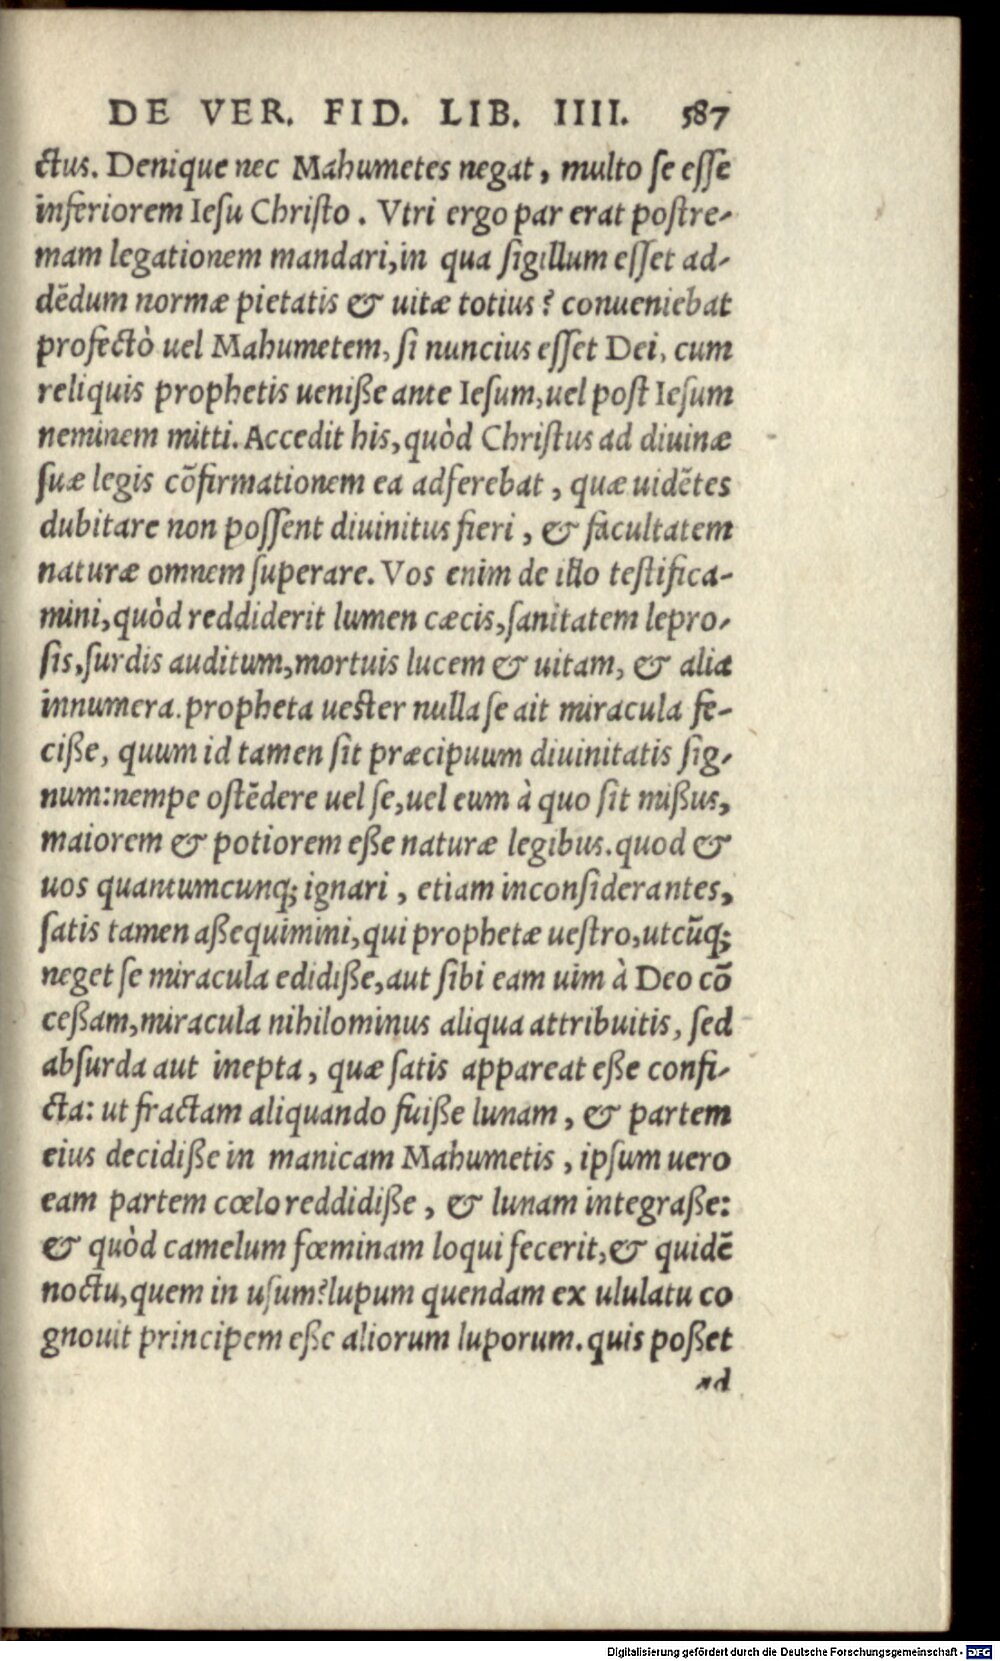 DE VER. FID. LIB. IIII. 587
ctus. Denique nec Mahumetes negat, multo ſe eſſe
inferiorem Ieſu Chriſto. Vtri ergo par erat poſtre-
mam legationem mandari, in qua ſigillum eſſet ad-
dẽdum normæ pietatis & uitæ totius? conueniebat
profectò uel Mahumetem, ſi nuncius eſſet Dei, cum
reliquis prophetis ueniße ante Ieſum, uel poſt Ieſum
neminem mitti. Accedit his, quòd Chriſtus ad diuinæ
ſuæ legis cõfirmationem ea adferebat, quæ uidẽtes
dubitare non poſſent diuinitus fieri, & facultatem
naturæ omnem ſuperare. Vos enim de illo teſtifica-
mini, quòd reddiderit lumen cæcis, ſanitatem lepro-
ſis, ſurdis auditum, mortuis lucem & uitam, & alia
innumera. propheta ueſter nulla ſe ait miracula fe-
ciße, quum id tamen ſit præcipuum diuinitatis ſig-
num: nempe oſtẽdere uel ſe, uel eum à quo ſit mißus,
maiorem & potiorem eße naturæ legibus. quod &
uos quantumcunq; ignari, etiam inconſiderantes,
ſatis tamen aßequimini, qui prophetæ ueſtro, utcũq;
neget ſe miracula edidiße, aut ſibi eam uim à Deo cõ
ceßam, miracula nihilominus aliqua attribuitis, ſed
abſurda aut inepta, quæ ſatis appareat eße confi-
cta: ut fractam aliquando fuiße lunam, & partem
eius decidiße in manicam Mahumetis, ipſum uero
eam partem cœlo reddidiße, & lunam integraße:
& quòd camelum fœminam loqui fecerit, & quidẽ
noctu, quem in uſum? lupum quendam ex ululatu co
gnouit principem eße aliorum luporum. quis poßet
ad
Digitalisierung gefördert durch die Deutsche Forschungsgemeinschaft - DFG